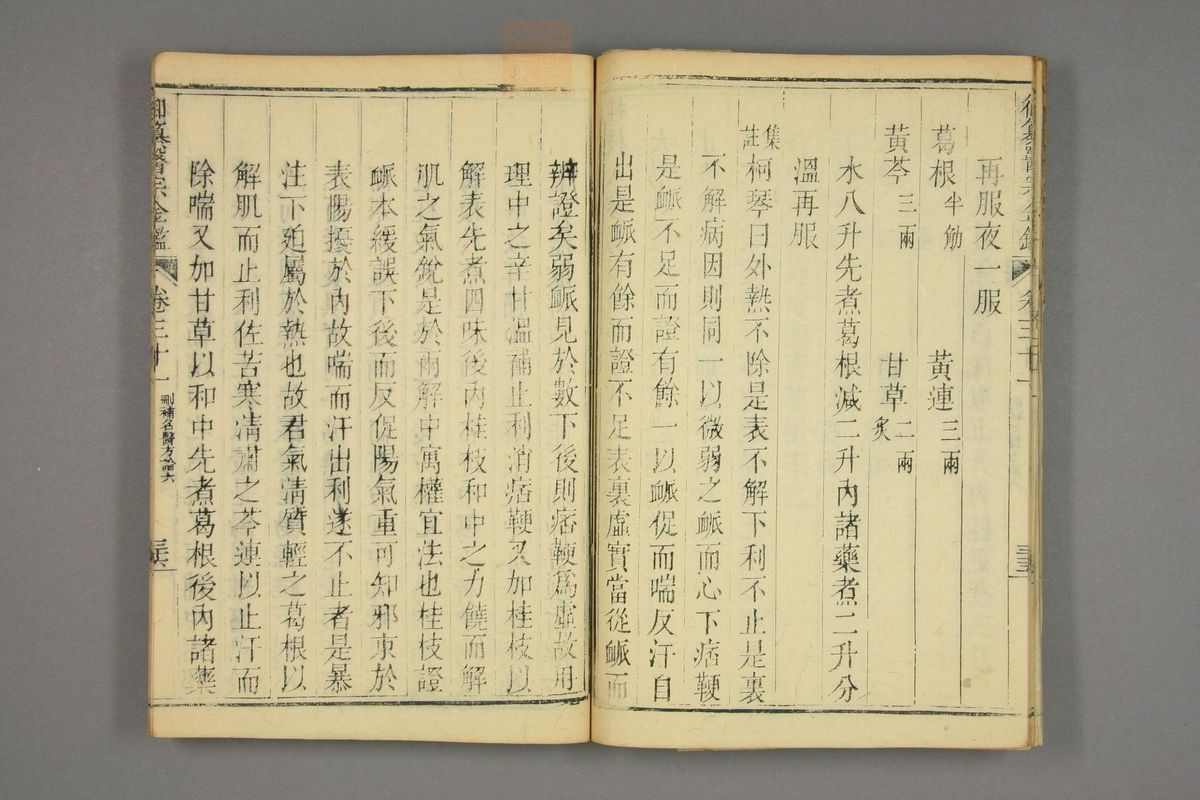 再服夜一服
葛根半觔 黃連三兩
黃芩三兩 甘草二兩炙
水八升先煮葛根減二升內諸藥煮二升分
溫再服
集註柯琴曰外熱不除是表不解下利不止是裏
不解病因則同一以微弱之䘑而心下痞鞕
是䘑不足而證有餘一以䘑促而喘反汗自
出是䘑有餘而證不足表裏虛實當從䘑而
辨證矣弱䘑見於數下後則痞鞕爲虛故用
理中之辛甘溫補止利消痞鞕又加桂枝以
解表先煮四味後內桂枝和中之力饒而解
肌之氣銳是於兩解中寓權宜法也桂枝證
䘑本緩誤下後而反促陽氣重可知邪束於
表陽擾於內故喘而汗出利遂不止者是暴
注下廹屬於熱也故君氣淸質輕之葛根以
解肌而止利佐苦寒淸肅之芩連以止汗而
除喘又加甘草以和中先煮葛根後內諸藥
御纂醫宗金鑑 卷三十一 刪補名醫方論六